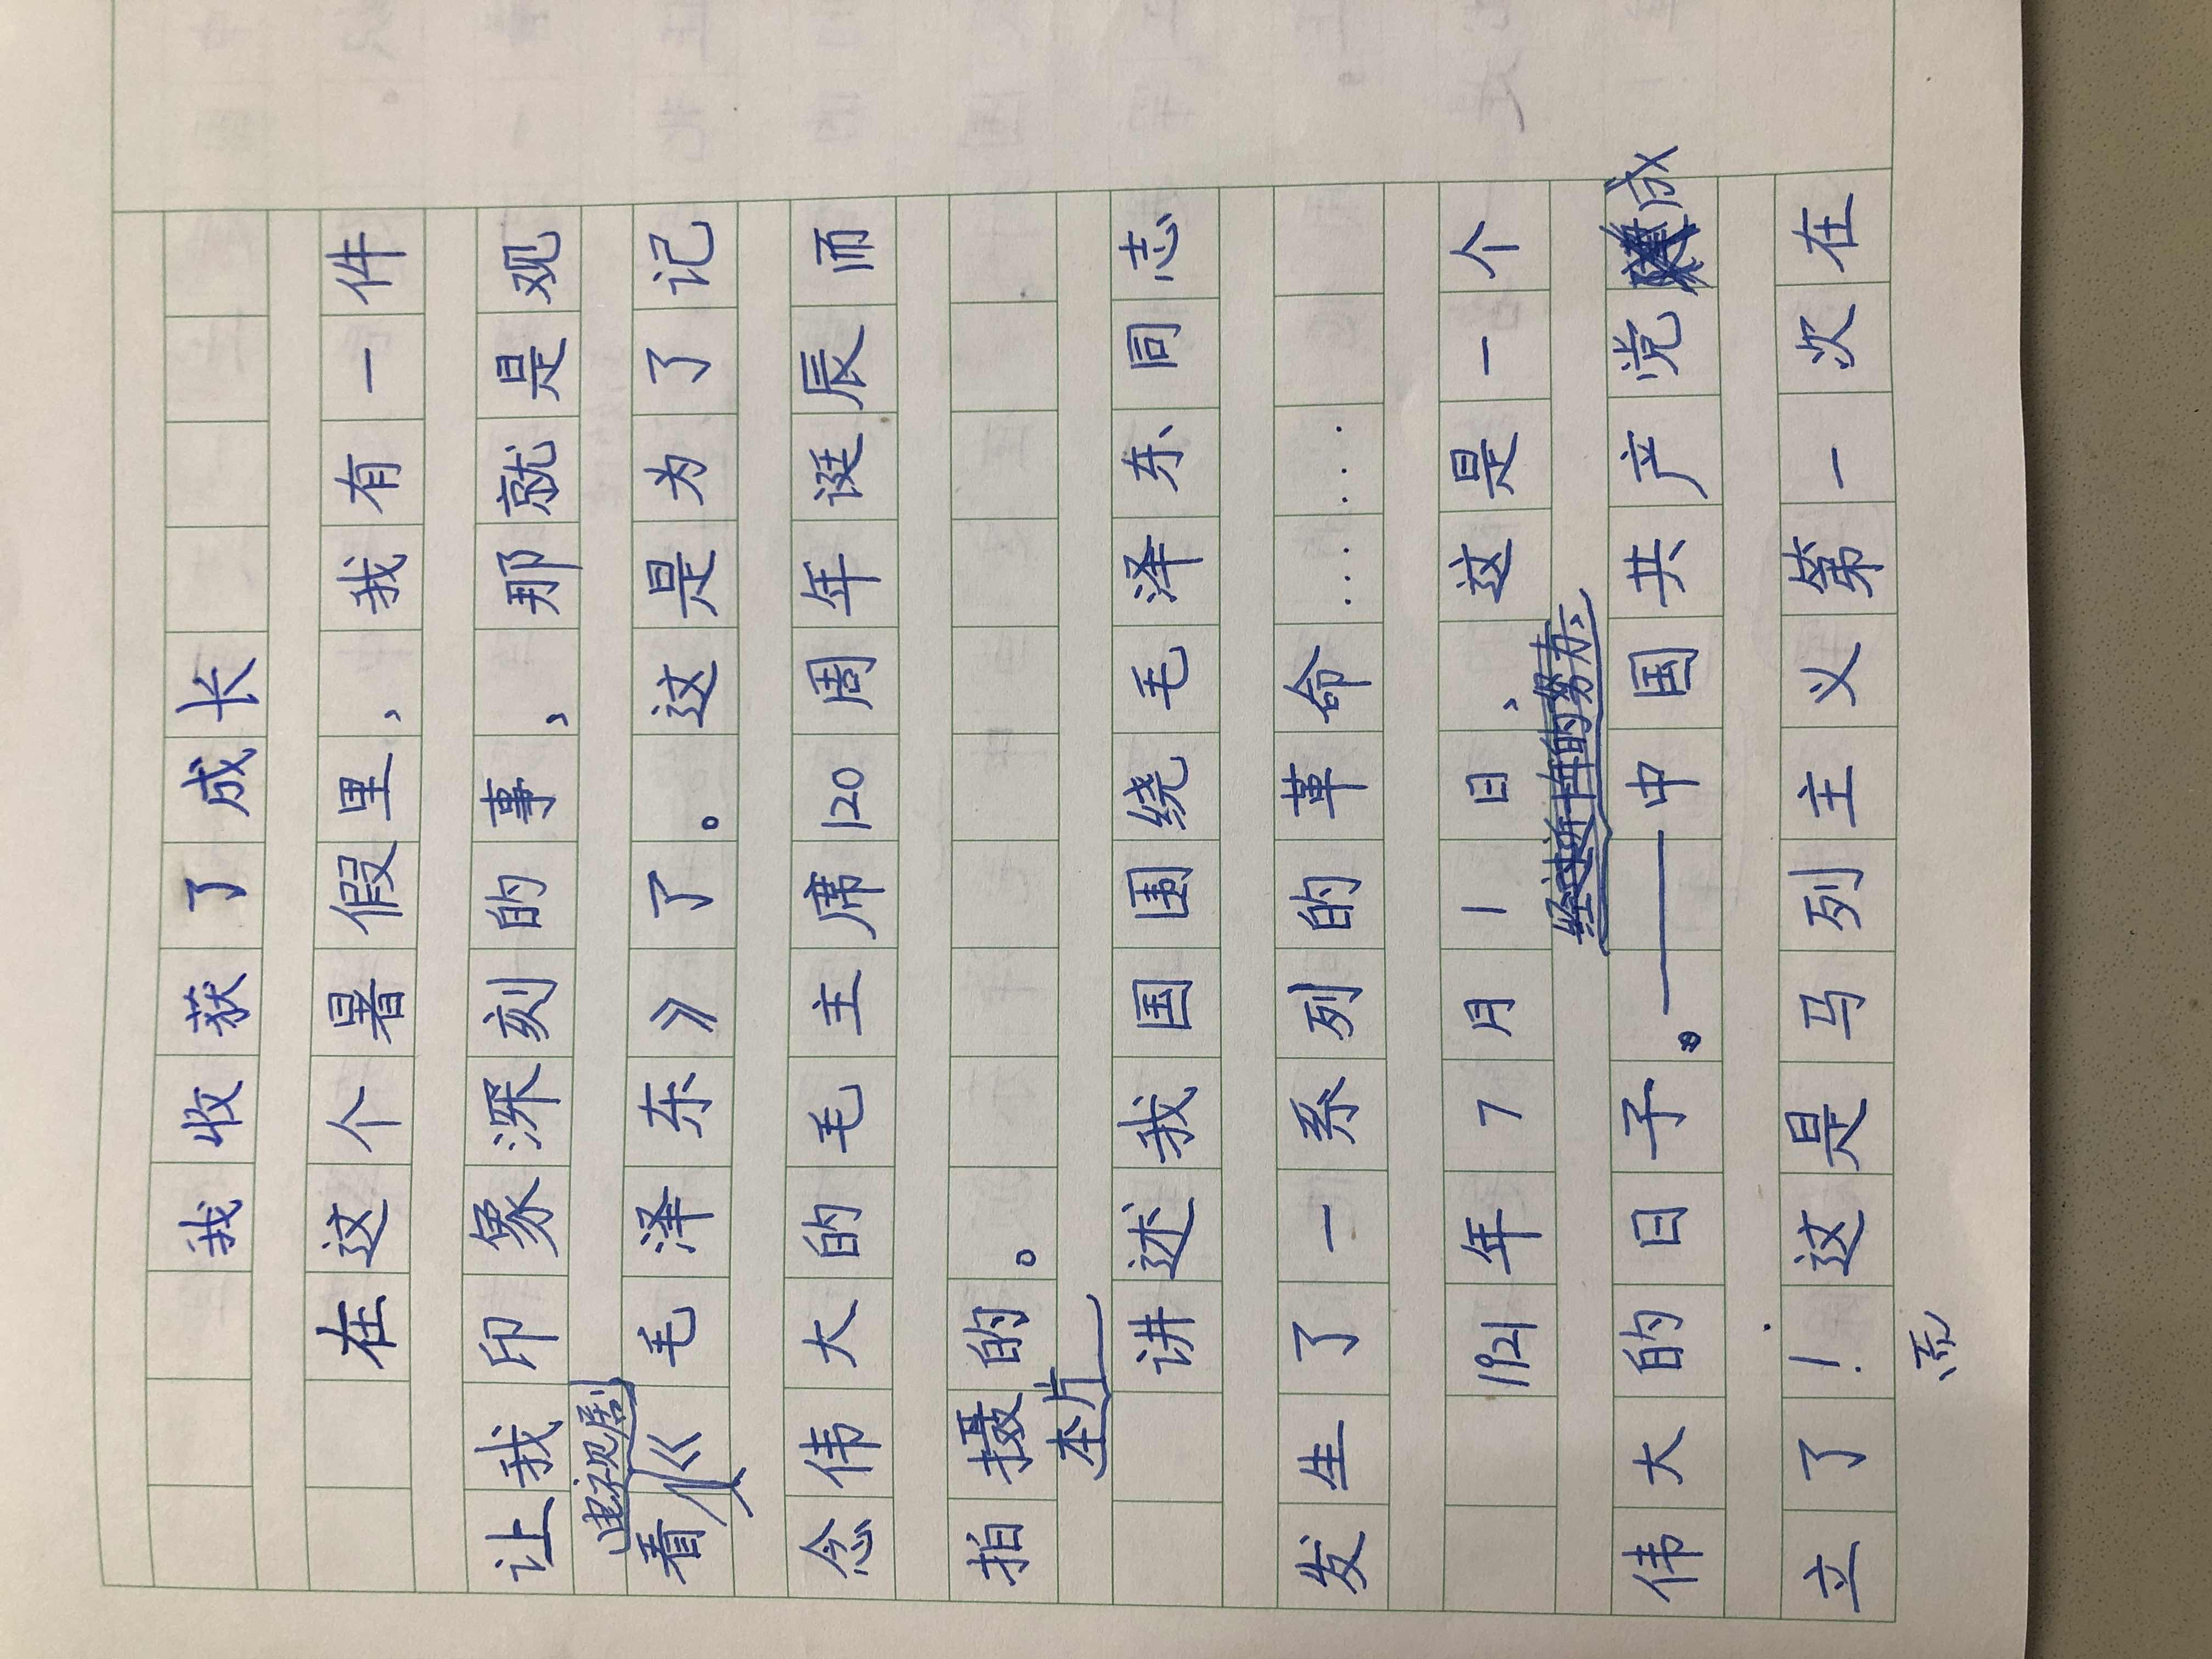 我收获了成长
在这个暑假里，我有一件
让我印象深刻的事，那就是观
看电视剧《毛泽东》了。这是为了记
念伟大的毛主席120周年诞辰而
拍摄的。
本片讲述我国围绕毛泽东同志
发生了一系列的革命……
1921年7月1日，这是一个
伟大的日子。——中国共产党成
立了！这是马列主义第一次在